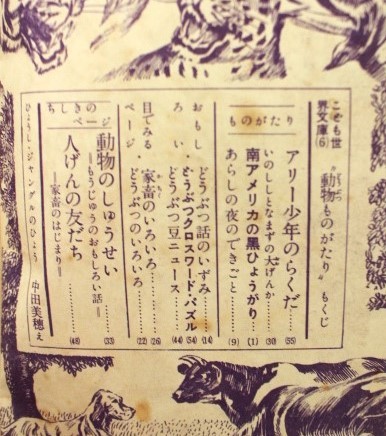 こども世
界文庫(6)
〝動物ものがたり〟 もくじ
ものがたり
アリー少年のらくだ……(55)
いのししとなまずの大げんか……(30)
南アメリカの黒ひょうがり……(1)
あらしの夜のできごと……(9)
おもしろい
どうぶつ話のいずみ……(14)
どうぶつクロスワード・パズル(54)
どうぶつ豆ニュース……(44)
目でみる
ページ
家畜のいろいろ……(26)
どうぶつのいろいろ……(22)
ちしきの
ページ
動物のしゅうせい……(33)
=もうじゅうのおもしろい話=
人げんの友だち……(48)
=家畜のはじまり=
ひょうし・ジャングルのひょう 中田美穂え